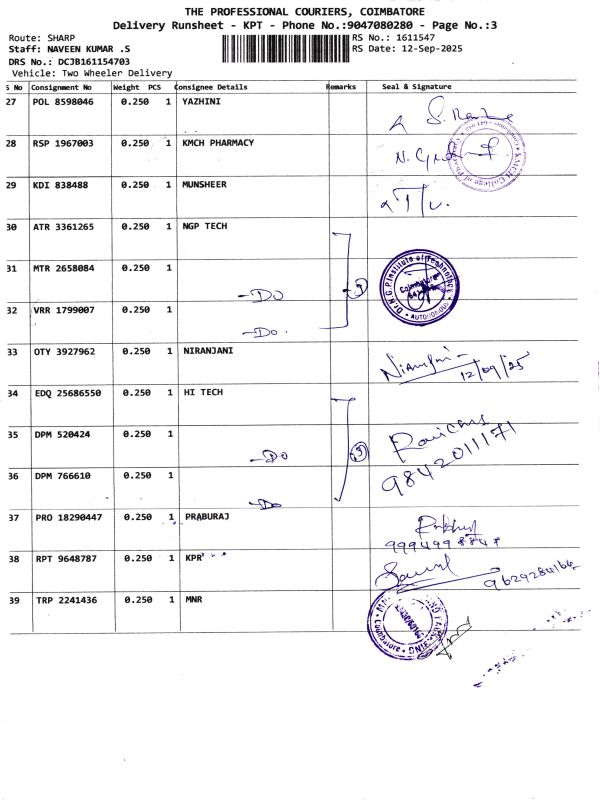 THE PROFESSIONAL COURIERS, COIMBATORE
Delivery Runsheet - KPT - Phone No.:9047080280 - Page No.:3
Route: SHARP RS No.: 1611547
Staff: NAVEEN KUMAR .S RS Date: 12-Sep-2025
DRS No.: DCJB161154703
Vehicle: Two Wheeler Delivery
S No Consignment No Weight PCS Consignee Details Remarks Seal & Signature
27 POL 8598046 0.250 1 YAZHINI
28 RSP 1967003 0.250 1 KMCH PHARMACY
KMCH College of Pharmacy
29 KDI 838488 0.250 1 MUNSHEER
30 ATR 3361265 0.250 1 NGP TECH
Dr.N.G.P.Institute of Technology
Coimbatore
AUTONOMOUS
31 MTR 2658084 0.250 1
-DO 3
32 VRR 1799007 0.250 1
-DO.
33 OTY 3927962 0.250 1 NIRANJANI
Niranjani
12/09/25
34 EDQ 25686550 0.250 1 HI TECH
35 DPM 520424 0.250 1
-DO 3
9842011171
36 DPM 766610 0.250 1
-DO
37 PRO 18290447 0.250 1 PRABURAJ
9994998848
38 RPT 9648787 0.250 1 KPR
39 TRP 2241436 0.250 1 MNR
Coimbatore